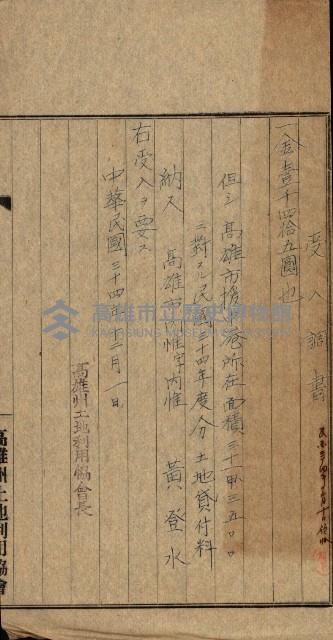 受入調書
一金壹千四拾五圓也
但シ高雄市援港所在面積三十一甲三五〇〇
ニ對スル民國三十四年度分土地貸付料
納人 高雄市內惟字內惟 黃登水
右受入ヲ要ス
中華民國三十四年十二月一日
高雄州土地利用協會長
高雄州土地利用協會
高雄市立歷史博物館